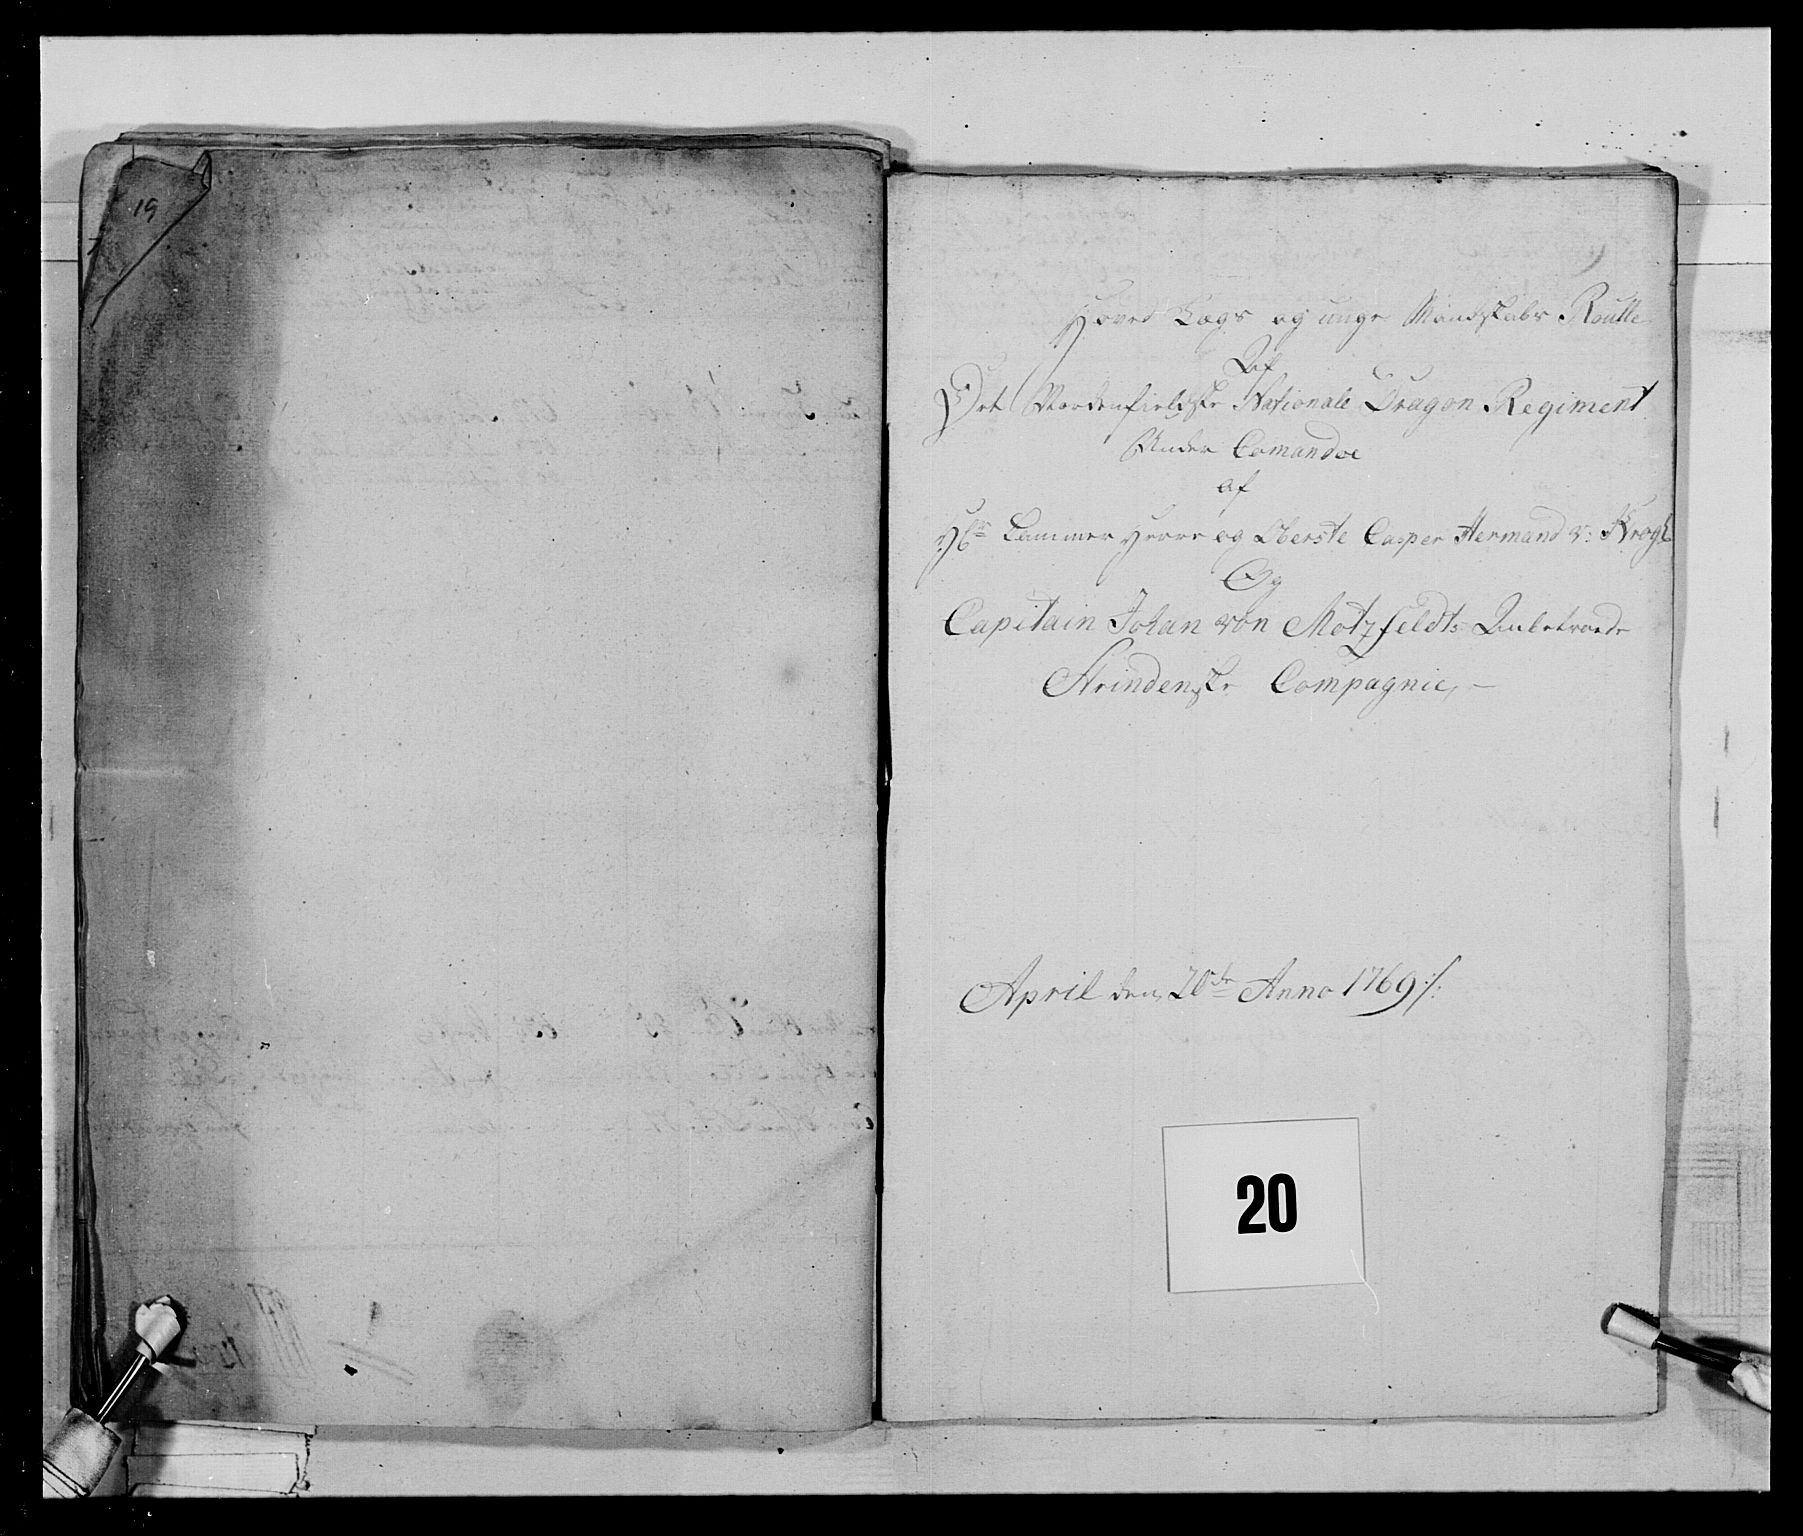 19
Hoved Lægs og unge Mandskabs Roulle
Af
Det Nordenfieldske Nationale Dragon Regiment
Under Comandoe
af
Hr Cammer Herre og Oberste Casper Hermand v: Krogh
Og
Capitain Johan von Motzfeldts Anbetroede
Strindenske Compagnie,
April den 20de Anno 1769 ./.
20